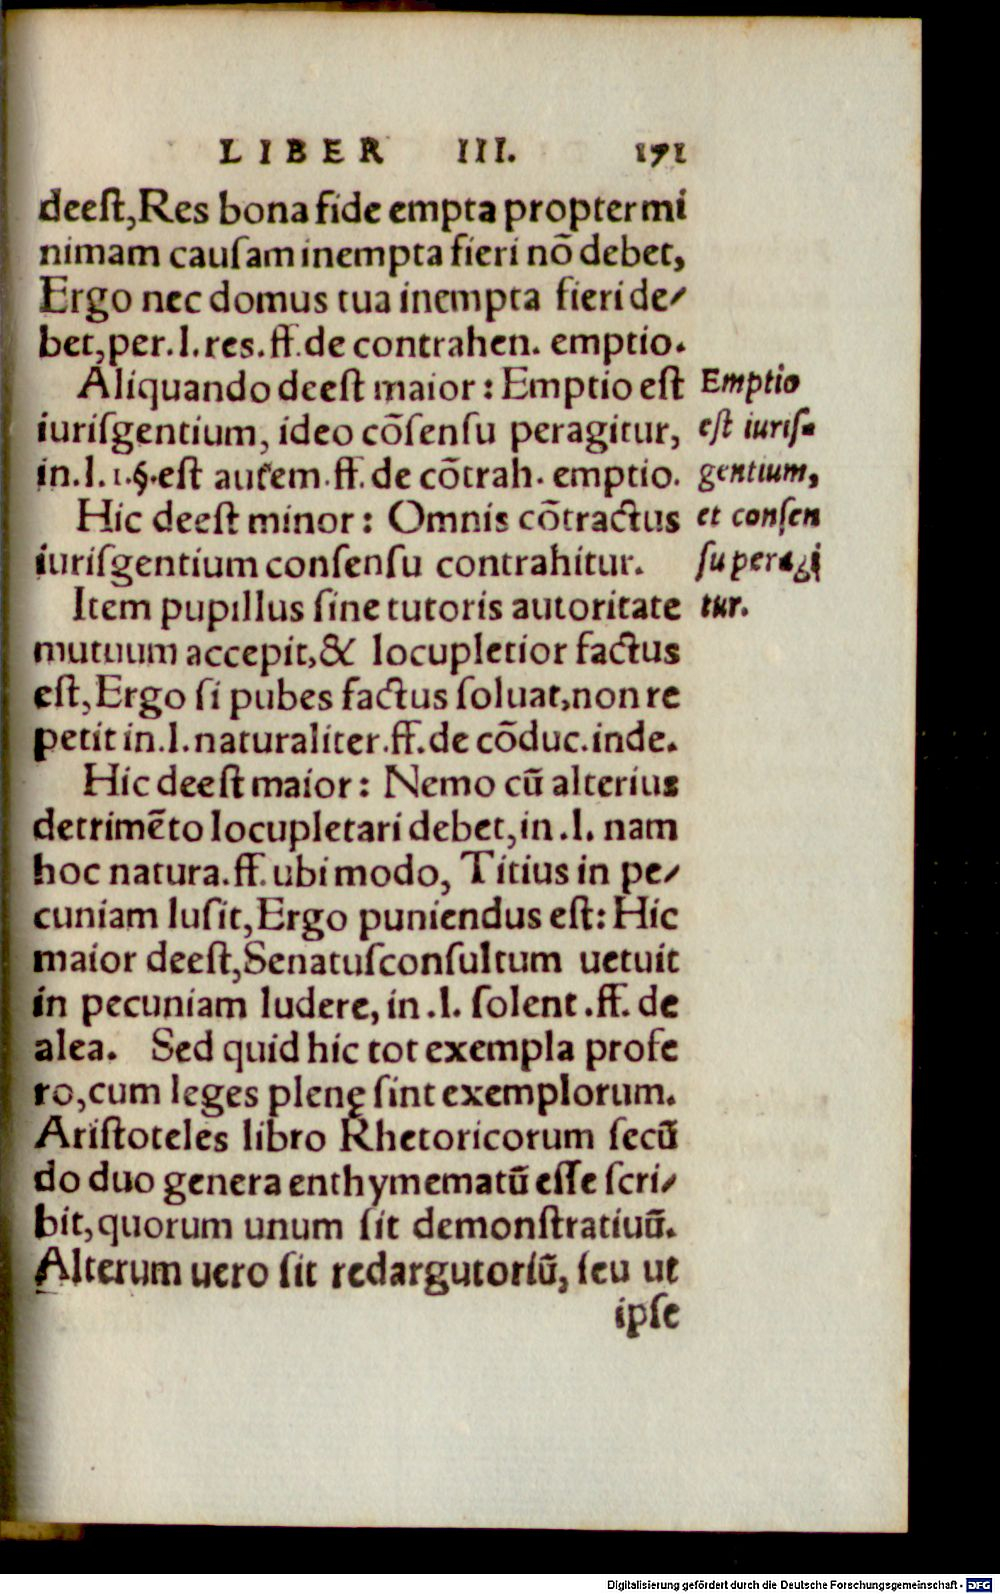 LIBER III. 171
deeſt,Res bona fide empta propter mi
nimam cauſam inempta fieri nõ debet,
Ergo nec domus tua inempta fieri de⸗
bet,per.l.res.ff.de contrahen. emptio.
Aliquando deeſt maior: Emptio eſt
iuriſgentium, ideo cõſenſu peragitur,
in.l.1.§.eſt autem.ff.de cõtrah. emptio.
Hic deeſt minor: Omnis cõtractus
iuriſgentium conſenſu contrahitur.
Item pupillus ſine tutoris autoritate
mutuum accepit,& locupletior factus
eſt,Ergo ſi pubes factus ſoluat,non re
petit in.l.naturaliter.ff.de cõduc.inde.
Hic deeſt maior: Nemo cũ alterius
detrimẽto locupletari debet,in.l. nam
hoc natura.ff.ubi modo, Titius in pe⸗
cuniam luſit,Ergo puniendus eſt: Hic
maior deeſt,Senatuſconſultum uetuit
in pecuniam ludere, in.l. ſolent.ff. de
alea. Sed quid hic tot exempla profe
ro,cum leges plenę ſint exemplorum.
Ariſtoteles libro Rhetoricorum ſecũ
do duo genera enthymematũ eſſe ſcri⸗
bit,quorum unum ſit demonſtratiuũ.
Alterum uero ſit redargutoriũ, ſeu ut
ipſe
Emptio
eſt iuriſ⸗
gentium,
et conſen
ſu peragi
tur.
Digitalisierung gefördert durch die Deutsche Forschungsgemeinschaft - DFG